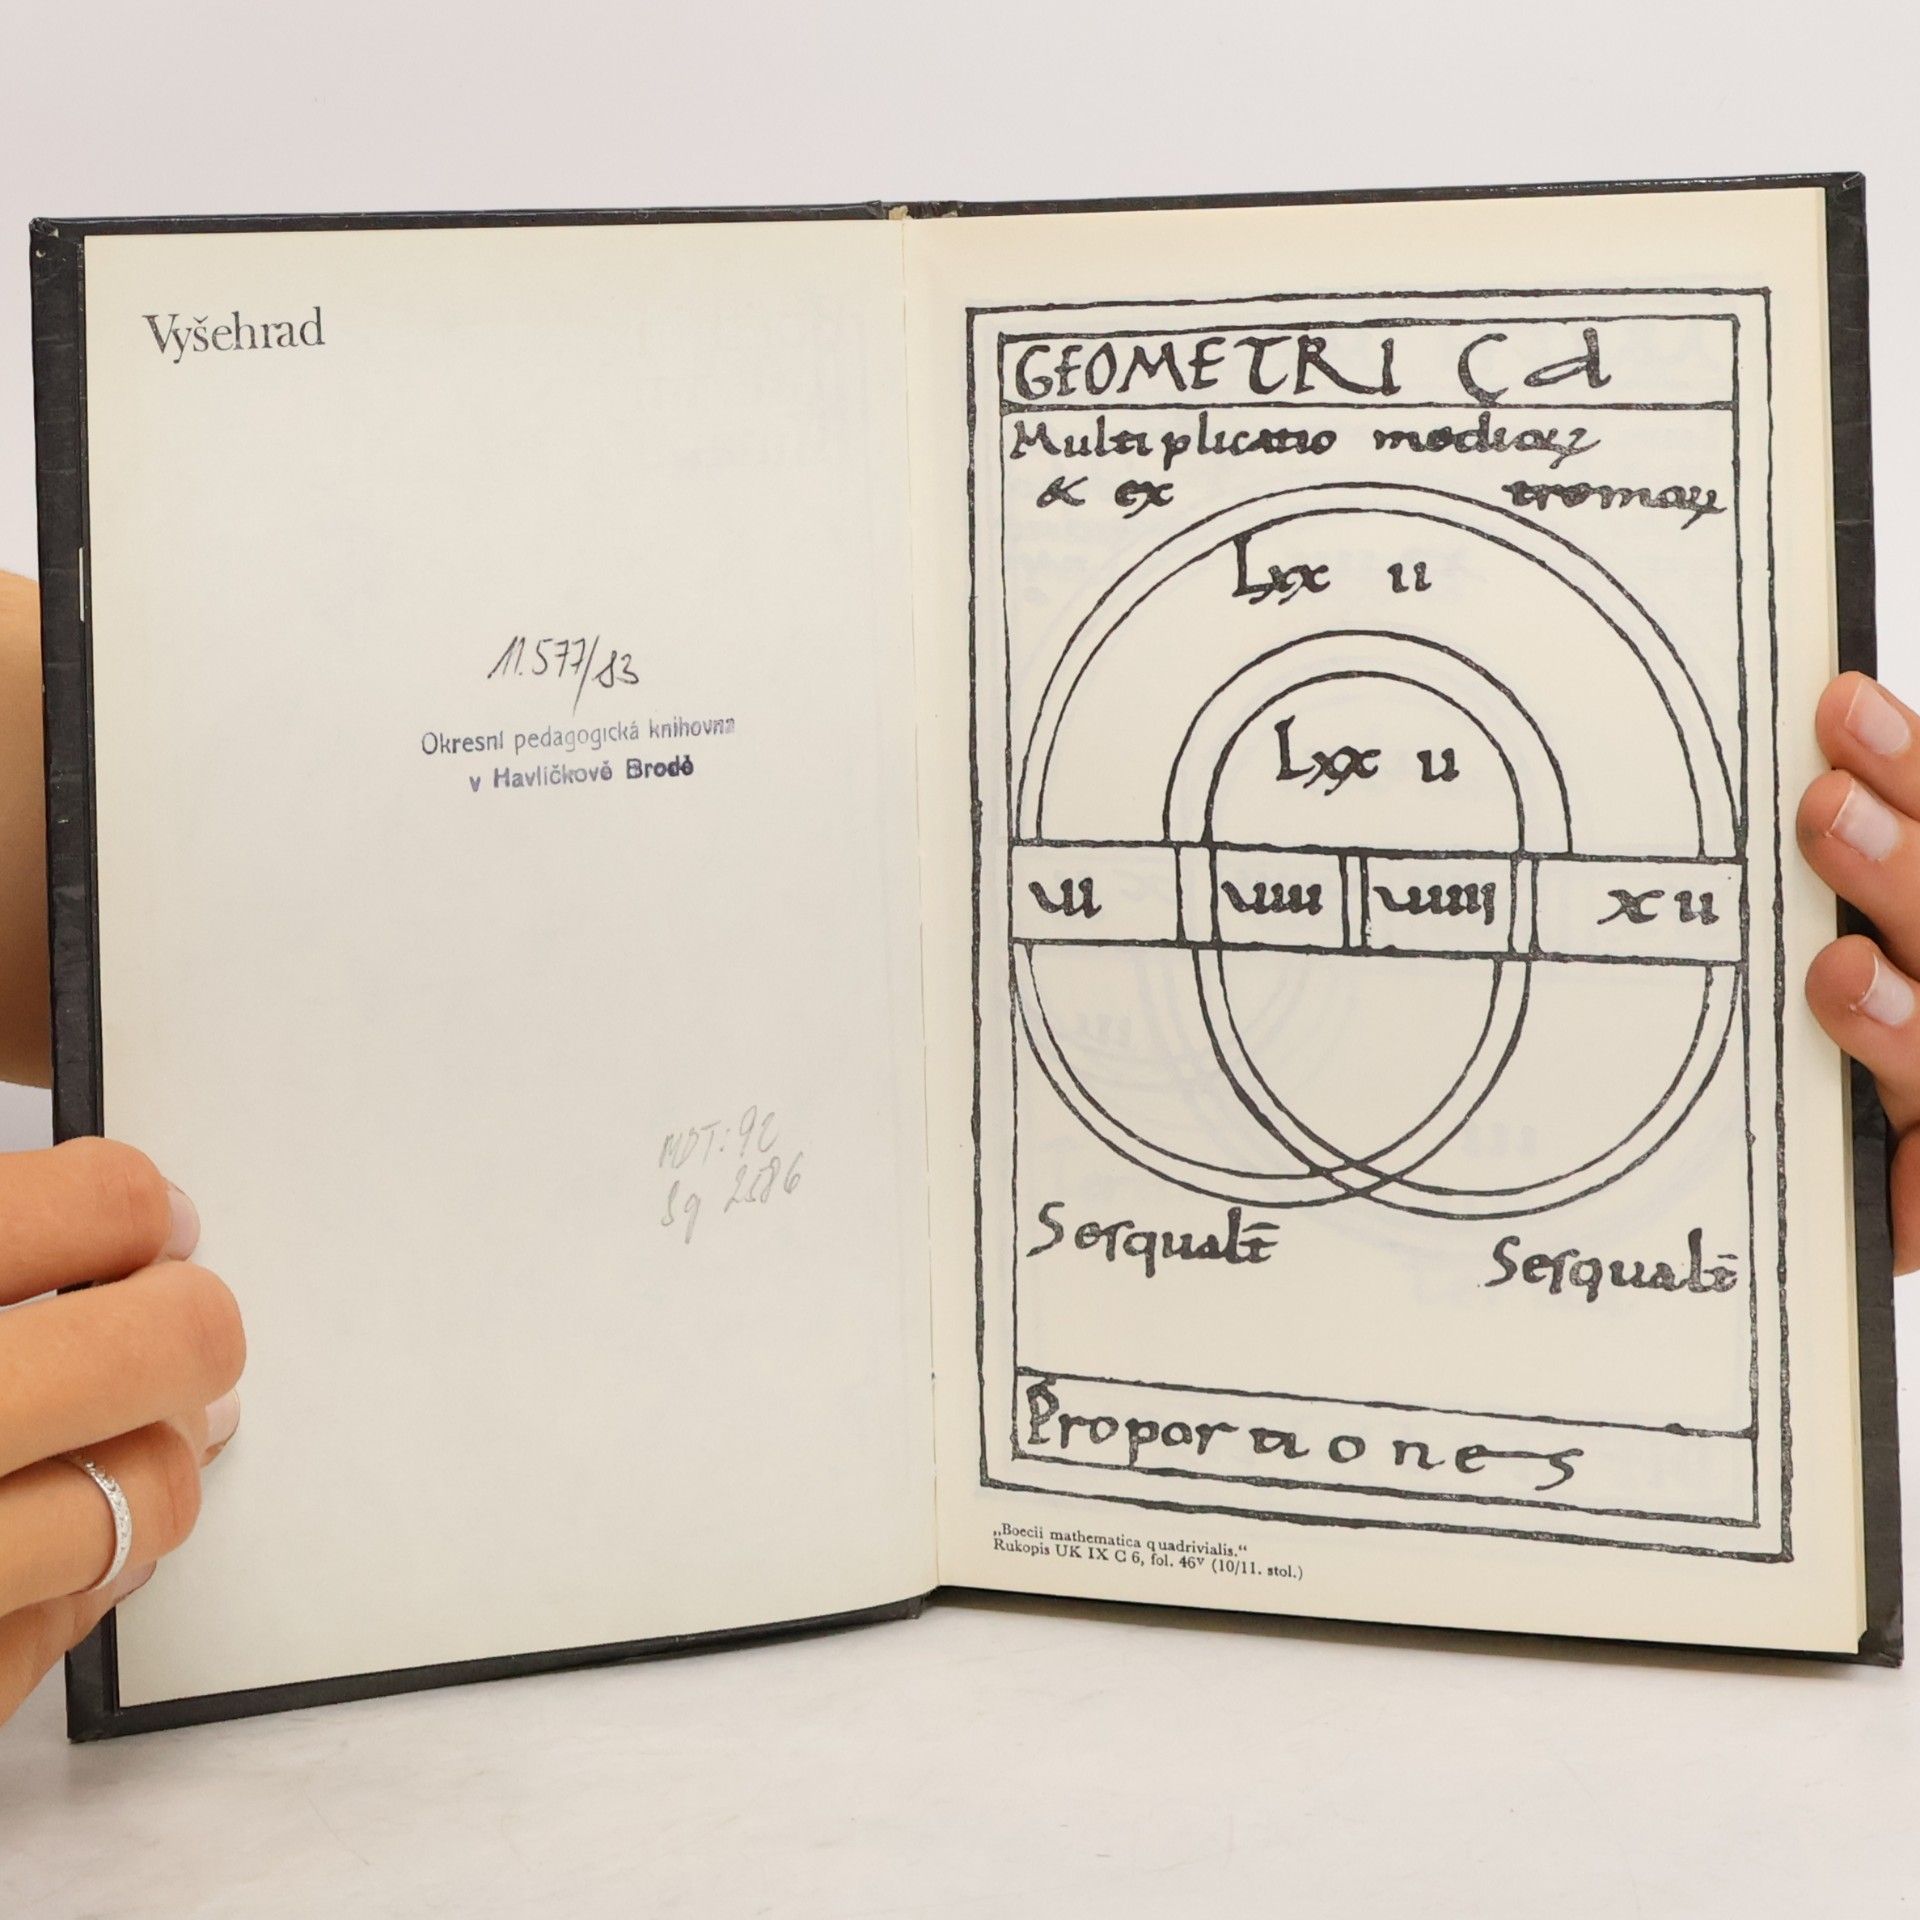 Vyšehrad
11.577/83
Okresní pedagogická knihovna
v Havlíčkově Brodě
MDT: 92
Sg 2586
GEOMETRI Ç d
Multiplicatio
& ex
Lxx ii
Lxx ii
vi viii viiii xii
Proportiones
„Boecii mathematica quadrivialis.“
Rukopis UK IX C 6, fol. 46ᵛ (10/11. stol.)